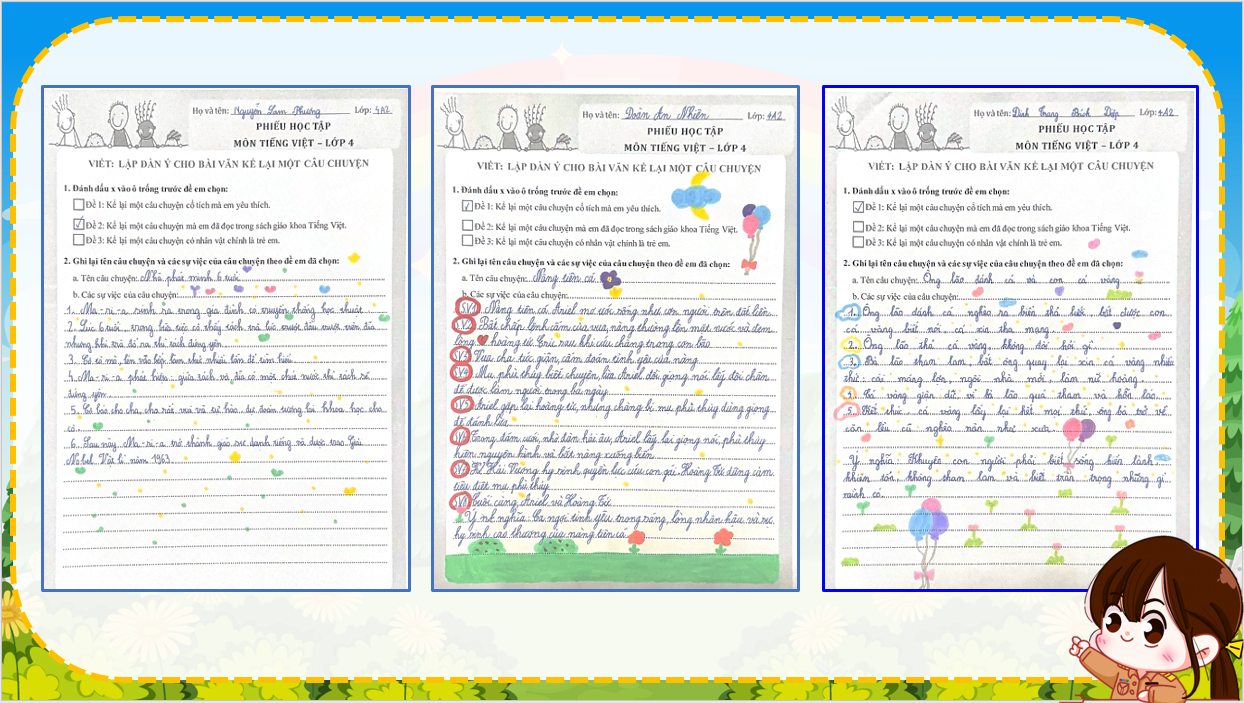 Họ và tên: Nguyễn Lam Phương Lớp: 4A2
PHIẾU HỌC TẬP
MÔN TIẾNG VIỆT – LỚP 4
VIẾT: LẬP DÀN Ý CHO BÀI VĂN KỂ LẠI MỘT CÂU CHUYỆN
1. Đánh dấu x vào ô trống trước đề em chọn:
Đề 1: Kể lại một câu chuyện cổ tích mà em yêu thích.
Đề 2: Kể lại một câu chuyện mà em đã đọc trong sách giáo khoa Tiếng Việt.
Đề 3: Kể lại một câu chuyện có nhân vật chính là trẻ em.
2. Ghi lại tên câu chuyện và các sự việc của câu chuyện theo đề em đã chọn:
a. Tên câu chuyện: Nhà phát minh 6 tuổi
b. Các sự việc của câu chuyện:
1. Ma-ri-a sinh ra trong gia đình có truyền thống học thuật
2. Lúc 6 tuổi, trong bữa tiệc cô thấy tách trà lúc trượt đầu trượt trên đĩa
nhưng khi trà đổ ra thì tách dừng yên.
3. Cô tò mò, lẻn vào bếp làm thử nhiều lần để tìm hiểu
4. Ma-ri-a phát hiện: giữa tách và đĩa có một chút nước thì tách sẽ
đứng yên.
5. Cô báo cho cha, cha rất vui và tự hào, dự đoán tương lai khoa học cho
cô.
6. Sau này, Ma-ri-a trở thành giáo sư danh tiếng và được trao Giải
Nobel Vật lí năm 1963
Họ và tên: Đoàn An Nhiên Lớp: 4A2
PHIẾU HỌC TẬP
MÔN TIẾNG VIỆT – LỚP 4
VIẾT: LẬP DÀN Ý CHO BÀI VĂN KỂ LẠI MỘT CÂU CHUYỆN
1. Đánh dấu x vào ô trống trước đề em chọn:
Đề 1: Kể lại một câu chuyện cổ tích mà em yêu thích.
Đề 2: Kể lại một câu chuyện mà em đã đọc trong sách giáo khoa Tiếng Việt.
Đề 3: Kể lại một câu chuyện có nhân vật chính là trẻ em.
2. Ghi lại tên câu chuyện và các sự việc của câu chuyện theo đề em đã chọn:
a. Tên câu chuyện: Nàng tiên cá
b. Các sự việc của câu chuyện:
SV1 Nàng tiên cá Ariel mơ ước sống như con người trên đất liền.
SV2 Bất chấp lệnh cấm của vua, nàng thường lên mặt nước và đem
lòng hoàng tử Eric sau khi cứu chàng trong cơn bão
SV3 Vua cha tức giận, cấm đoán tình yêu của nàng
SV4 Mụ phù thủy biết chuyện, lừa Ariel đổi giọng nói lấy đôi chân
để được làm người trong ba ngày
SV5 Ariel gặp lại hoàng tử, nhưng chàng bị mụ phù thủy dùng giọng
để đánh lừa
SV6 Trong đám cưới, nhờ đàn hải âu, Ariel lấy lại giọng nói, phù thủy
hiện nguyên hình và bắt nàng xuống biển
SV7 Hải Vương hy sinh quyền lực cứu con gái. Hoàng Tử dũng cảm
tiêu diệt mụ phù thủy
SV8 cưới cùng Ariel và Hoàng Tử
Ý nghĩa: Ca ngợi tình yêu trong sáng, lòng nhân hậu và sự
hy sinh cao thượng của nàng tiên cá
Họ và tên: Đinh Trang Bích Diệp Lớp: 4A2
PHIẾU HỌC TẬP
MÔN TIẾNG VIỆT – LỚP 4
VIẾT: LẬP DÀN Ý CHO BÀI VĂN KỂ LẠI MỘT CÂU CHUYỆN
1. Đánh dấu x vào ô trống trước đề em chọn:
Đề 1: Kể lại một câu chuyện cổ tích mà em yêu thích.
Đề 2: Kể lại một câu chuyện mà em đã đọc trong sách giáo khoa Tiếng Việt.
Đề 3: Kể lại một câu chuyện có nhân vật chính là trẻ em.
2. Ghi lại tên câu chuyện và các sự việc của câu chuyện theo đề em đã chọn:
a. Tên câu chuyện: Ông lão đánh cá và con cá vàng
b. Các sự việc của câu chuyện:
1. Ông lão đánh cá nghèo ra biển thả lưới bắt được con
cá vàng biết nói, cá xin tha mạng
2. Ông lão thả cá vàng, không đòi hỏi gì
3. Bà lão tham lam, bắt ông quay lại xin cá vàng nhiều
thứ: cái máng lợn, ngôi nhà mới, làm nữ hoàng
4. Cá vàng giận dữ vì bà lão quá tham và hỗn láo
5. Kết thúc cá vàng lấy lại hết mọi thứ, ông bà trở về
căn lều cá nghèo nàn như xưa
Ý nghĩa: Khuyên con người phải biết sống hiền lành
khiêm tốn, không tham lam và biết trân trọng những gì
mình có